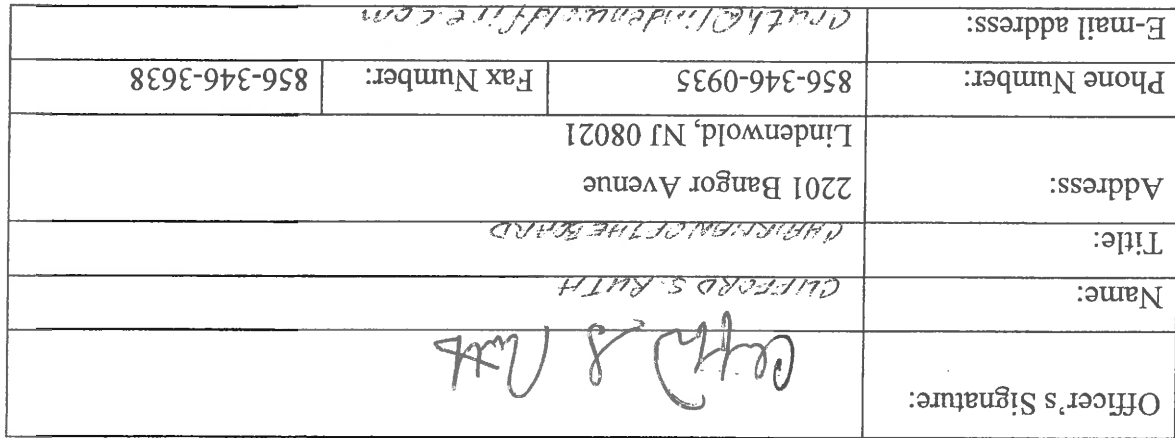 Officer's Signature: Clifford S Ruth
Name: CLIFFORD S. RUTH
Title: CHAIRMAN OF THE BOARD
Address: 2201 Bangor Avenue
Lindenwold, NJ 08021
Phone Number: 856-346-0935 Fax Number: 856-346-3638
E-mail address: cruth@lindenwoldfire.com